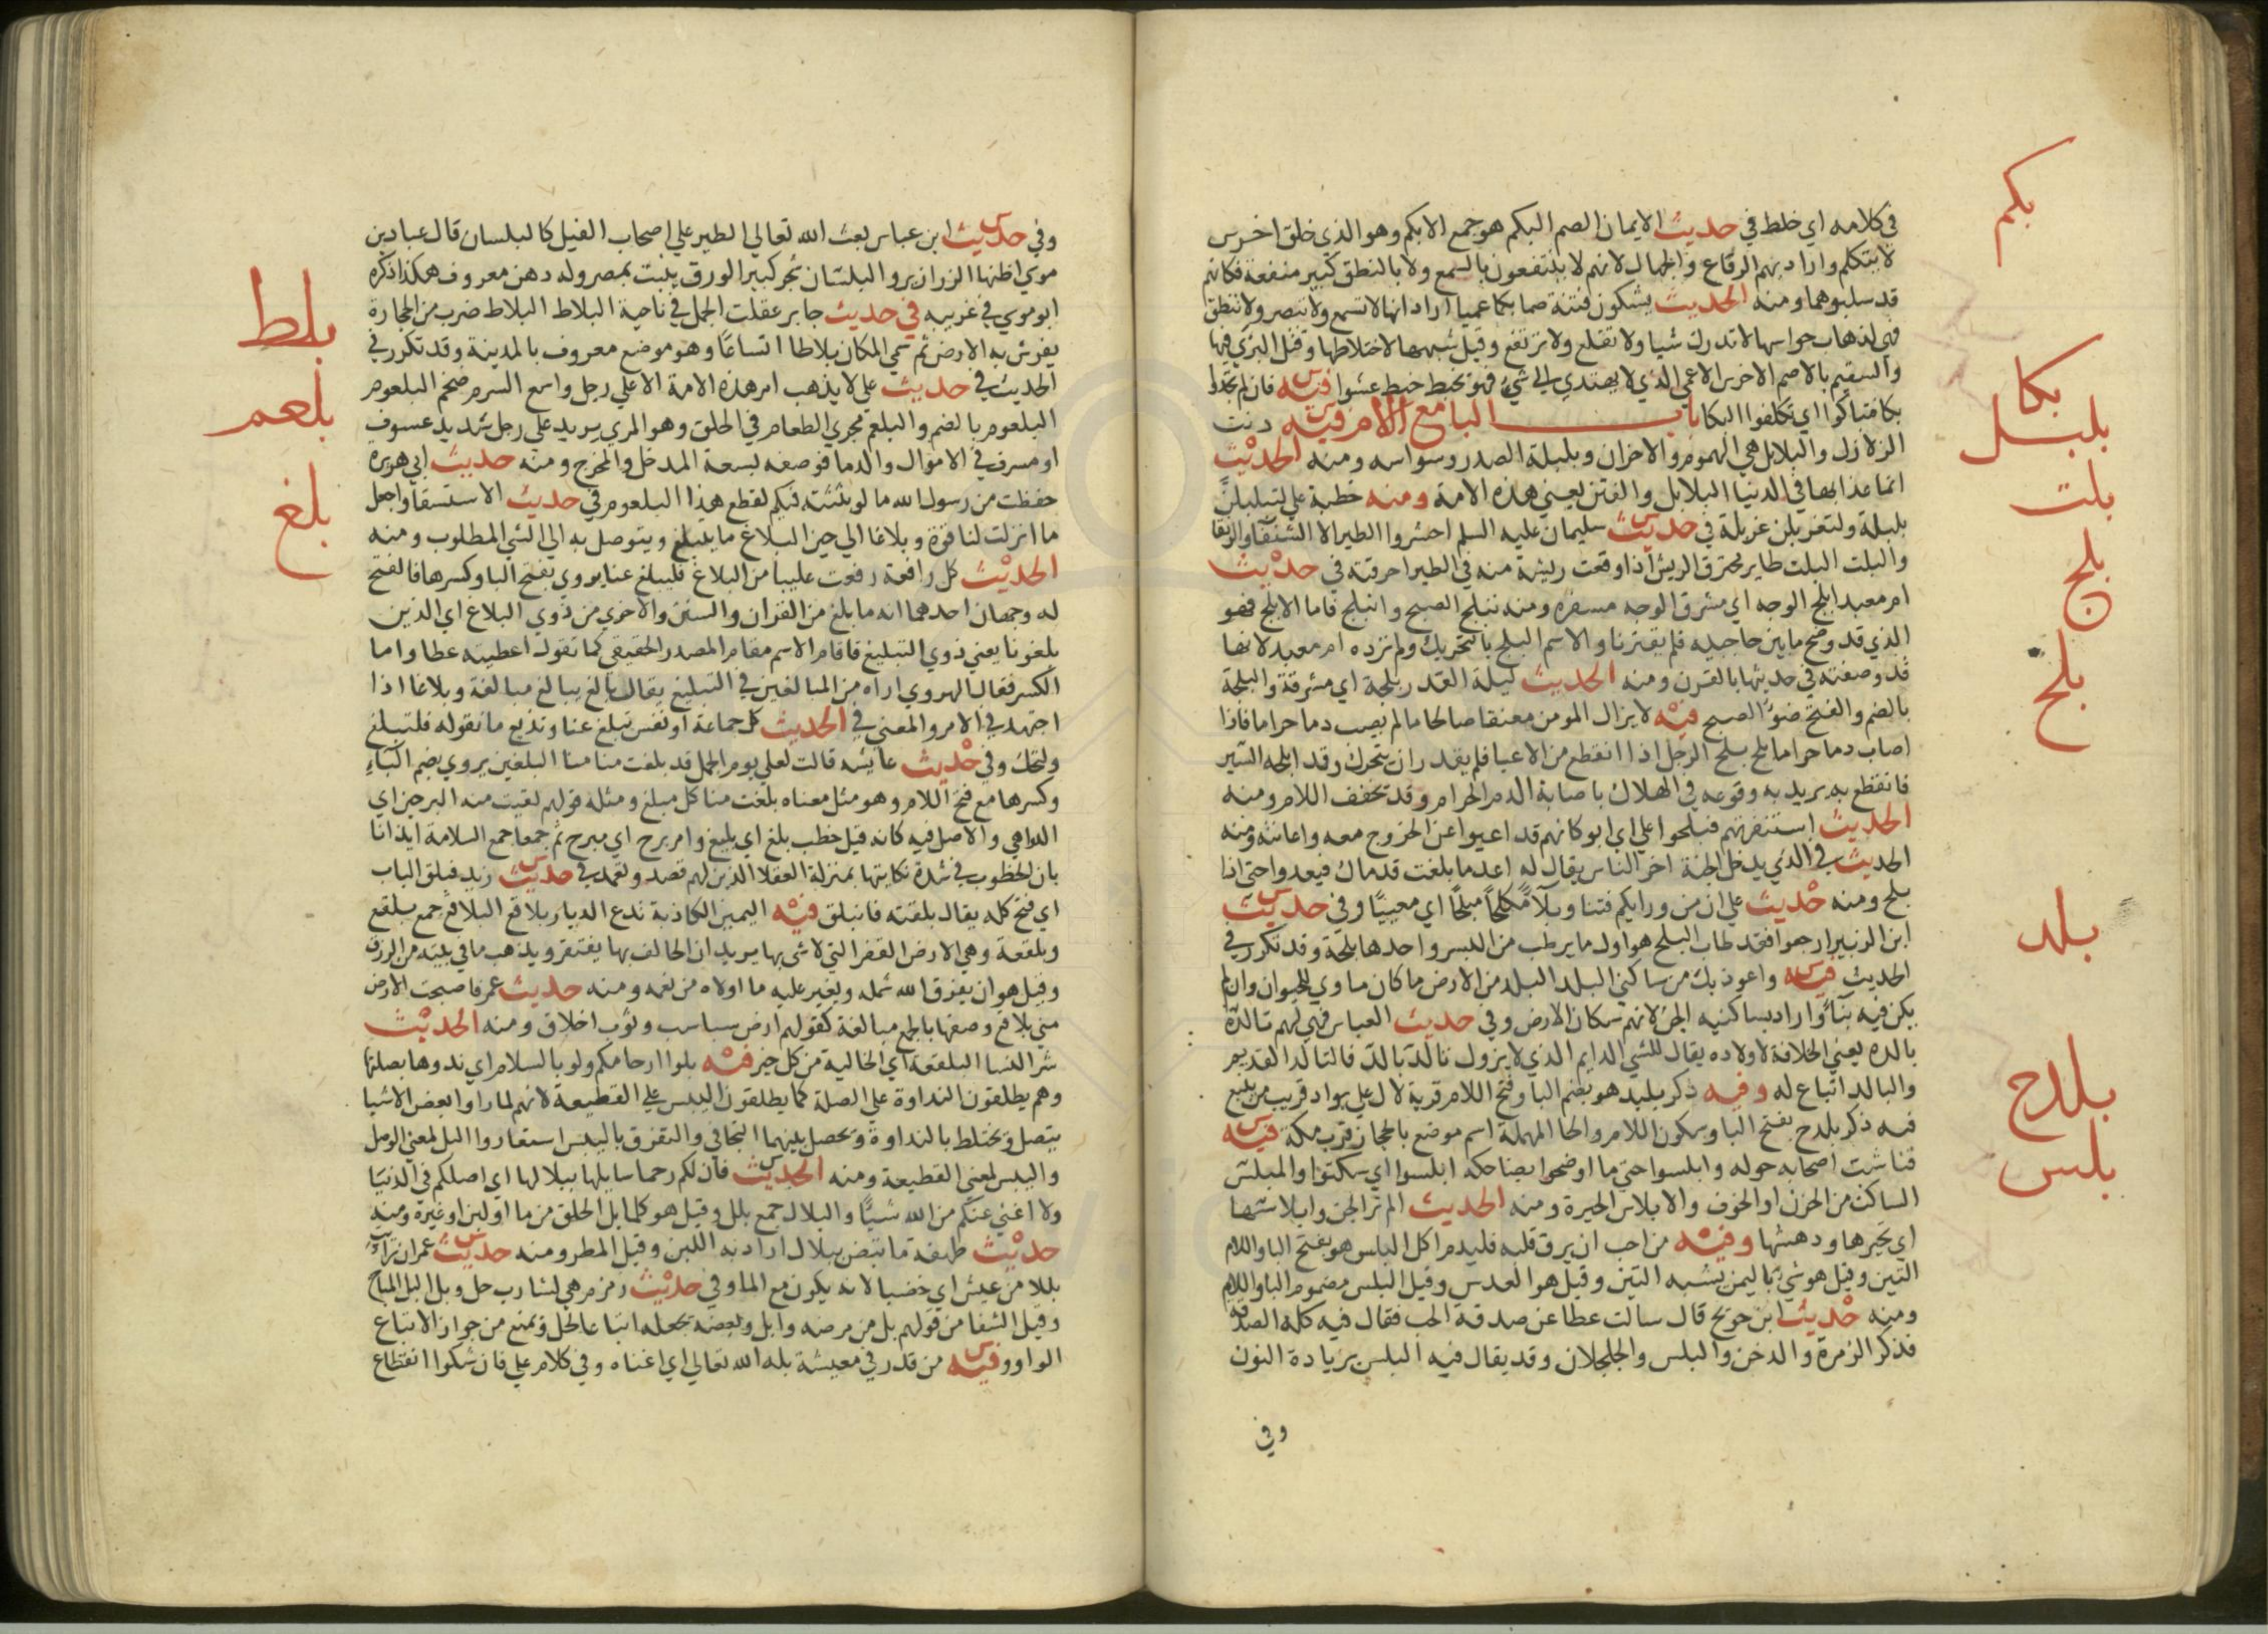 بكم
في كلامه اي خلط في حديث الايمان الصم البكم هو جمع الابكم وهو الذي خلق اخرس
لا يتكلم واراد بهم الرقاع والجهال لانهم لا ينتفعون بالسمع ولا بالنطق كبير منفعة فكانهم
قد سلبوهما ومنه الحديث يشكون فتنة صما بكما عميا اراد انها لا تسمع ولا تبصر ولا تنطق
فهي لذهاب حواسها لا تدرك شيا ولا تقلع ولا ترتفع وقيل شبهها لاختلاطها وقتل البري فيها
والسقيم بالاصم الاخرس الاعمي الذي لا يهتدي الي شي فهو يخبط خبط عشوا فيه فان لم تجدوا
بكا
بكا فتباكوا اي تكلفوا البكا باب البا مع اللام فيه دنت
بلبل
الزلازل والبلابل هي الهموم والاحزان وبلبلة الصدر وسواسه ومنه الحديث
انما عذابها في الدنيا البلابل والفتن يعني هذه الامة ومنه خطبة علي لتبلبلن
بلت
بلبلة ولتغربلن غربلة في حديث سليمان عليه السلم احشروا الطير الا الشنقا والرنقا
والبلت البلت طاير محترق الريش اذا وقعت ريشة منه في الطير احرقته في حديث
بلج
ام معبد ابلج الوجه اي مشرق الوجه مسفره ومنه تبلج الصبح وانبلج فاما الابلج فهو
الذي قد وضح ما بين حاجبيه فلم يقترنا والاسم البلج بالتحريك ولم ترده ام معبد لانها
قد وصفته في حديثها بالقرن ومنه الحديث ليلة القدر بلجة اي مشرقة والبلجة
بلح
بالضم والفتح ضوء الصبح فيه لا يزال المومن معنقا صالحا ما لم يصب دما حراما فاذا
اصاب دما حراما بلح بلح الرجل اذا انقطع من الاعيا فلم يقدر ان يتحرك وقد ابلحه السير
فانقطع به يريد به وقوعه في الهلاك باصابة الدم الحرام وقد تخفف اللام ومنه
الحديث استنفرتهم فبلحوا علي اي ابوا كانهم قد اعيوا عن الخروج معه واعانته ومنه
الحديث في الذي يدخل الجنة اخر الناس يقال له اعد ما بلغت قدماك فيعدوا حتي اذا
بلح ومنه حديث علي ان من ورايكم فتنا وبلاء مكلحا مبلحا اي معييا وفي حديث
بلد
ابن الزبير ارجعوا فقد طاب البلح هو اول ما يرطب من البسر واحدها بلحة وقد تكرر في
الحديث فيه واعوذ بك من ساكني البلد البلد من الارض ما كان ماوي للحيوان وان لم
يكن فيه بناء واراد بساكنيه الجن لانهم سكان الارض وفي حديث العباس فهي لهم تالدة
بالدة يعني الخلافة لاولاده يقال للشي الدايم الذي لا يزول تالد بالد فالتالد القديم
بلدح
والبالد اتباع له وفيه ذكر بليد هو بضم البا وفتح اللام قرية لال علي بواد قريب من ينبع
فيه ذكر بلدح بفتح البا وسكون اللام والحا المهملة اسم موضع بالحجاز قرب مكة فيه
بلس
فتاشت اصحابه حوله وابلسوا حتي ما اوضحوا بضاحكة ابلسوا اي سكتوا والمبلس
الساكت من الحزن او الخوف والابلاس الحيرة ومنه الحديث الم تر الجن وابلاسها
اي تحيرها ودهشها وفيه من احب ان يرق قلبه فليدم اكل البلس هو بفتح البا واللام
التين وقيل هو شي باليمن يشبه التين وقيل هو العدس وقيل البلس مضموم البا واللام
ومنه حديث ابن جريج قال سالت عطا عن صدقة الحب فقال فيه كله الصدقة
فذكر الذرة والدخن والبلس والجلجلان وقد يقال فيه البلسن بزيادة النون
وفي
وفي حديث ابن عباس بعث الله تعالي الطير علي اصحاب الفيل كالبلسان قال عباد بن
موسي اظنها الزرازير والبلسان شجر كبير الورق ينبت بمصر وله دهن معروف هكذا ذكره
بلط
ابو موسي في غريبه في حديث جابر عقلت الجمل في ناحية البلاط البلاط ضرب من الحجارة
يفرش به الارض ثم سمي المكان بلاطا اتساعا وهو موضع معروف بالمدينة وقد تكرر في
بلعم
الحديث في حديث علي لا يذهب امر هذه الامة الا علي رجل واسع السرم ضخم البلعوم
البلعوم بالضم والبلعم مجري الطعام في الحلق وهو المري يريد علي رجل شديد عسوف
او مسرف في الاموال والدما فوصفه بسعة المدخل والمخرج ومنه حديث ابي هريرة
بلغ
حفظت من رسول الله ما لو بثثته فيكم لقطع هذا البلعوم في حديث الاستسقا واجعل
ما انزلت لنا قوة وبلاغا الي حين البلاغ ما يتبلغ ويتوصل به الي الشي المطلوب ومنه
الحديث كل رافعة رفعت علينا من البلاغ فليبلغ عنا يروي بفتح البا وكسرها فالفتح
له وجهان احدهما انه ما بلغ من القران والسنن والاخري من ذوي البلاغ اي الذين
بلغونا يعني ذوي التبليغ فاقام الاسم مقام المصدر الحقيقي كما تقول اعطيته عطا واما
الكسر فقال الهروي اراه من المبالغين في التبليغ يقال بالغ يبالغ مبالغة وبلاغا اذا
اجتهد في الامر والمعني في الحديث كل جماعة او نفس تبلغ عنا وتذيع ما نقوله فلتبلغ
ولتحك وفي حديث عايشه قالت لعلي يوم الجمل قد بلغت منا البلغين يروي بضم الباء
وكسرها مع فتح اللام وهو مثل معناه بلغت منا كل مبلغ ومثله قولهم لقيت منه البرحين اي
الدواهي والاصل فيه كانه قيل خطب بلغ اي بليغ وامر برح اي مبرح ثم جمعا جمع السلامة ايذانا
بان الخطوب في شدة نكايتها بمنزلة العقلا الذين لهم قصد وتعمد في حديث زيد فبلق الباب
اي فتح كله يقال بلقته فانبلق فيه اليمين الكاذبة تدع الديار بلاقع البلاقع جمع بلقع
وبلقعة وهي الارض القفر التي لا شي بها يريد ان الحالف بها يفتقر ويذهب ما في بيته من الرزق
وقيل هو ان يفرق الله شمله ويغير عليه ما اولاه من نعمه ومنه حديث عمر فاصبحت الارض
مني بلاقع وصفها بالجمع مبالغة كقولهم ارض سباسب وثوب اخلاق ومنه الحديث
شر النسا البلقعة اي الخالية من كل خير فيه بلوا ارحامكم ولو بالسلام اي ندوها بصلتها
وهم يطلقون النداوة علي الصلة كما يطلقون اليبس علي القطيعة لانهم لما راوا بعض الاشيا
يتصل ويختلط بالنداوة ويحصل بينهما التجافي والتفرق باليبس استعاروا البل لمعني الوصل
واليبس لمعني القطيعة ومنه الحديث فان لكم رحما سابلها ببلالها اي اصلكم في الدنيا
ولا اغني عنكم من الله شيا والبلال جمع بلل وقيل هو كلما بل الحلق من ما او لبن او غيره ومنه
حديث طهفة ما تبض ببلال اراد به اللبن وقيل المطر ومنه حديث عمر ان رايت
بللا من عيش اي خصبا لانه يكون مع الما وفي حديث زمزم هي لشارب حل وبل البل المباح
وقيل الشفا من قولهم بل من مرضه وابل وبعضهم يجعله اتباعا لحل ويمنع من جواز الاتباع
الواو وفيه من قدر في معيشة بله الله تعالي اي اغناه وفي كلام علي فان شكوا انقطاع